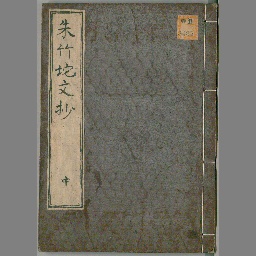 朱竹垞文抄
中